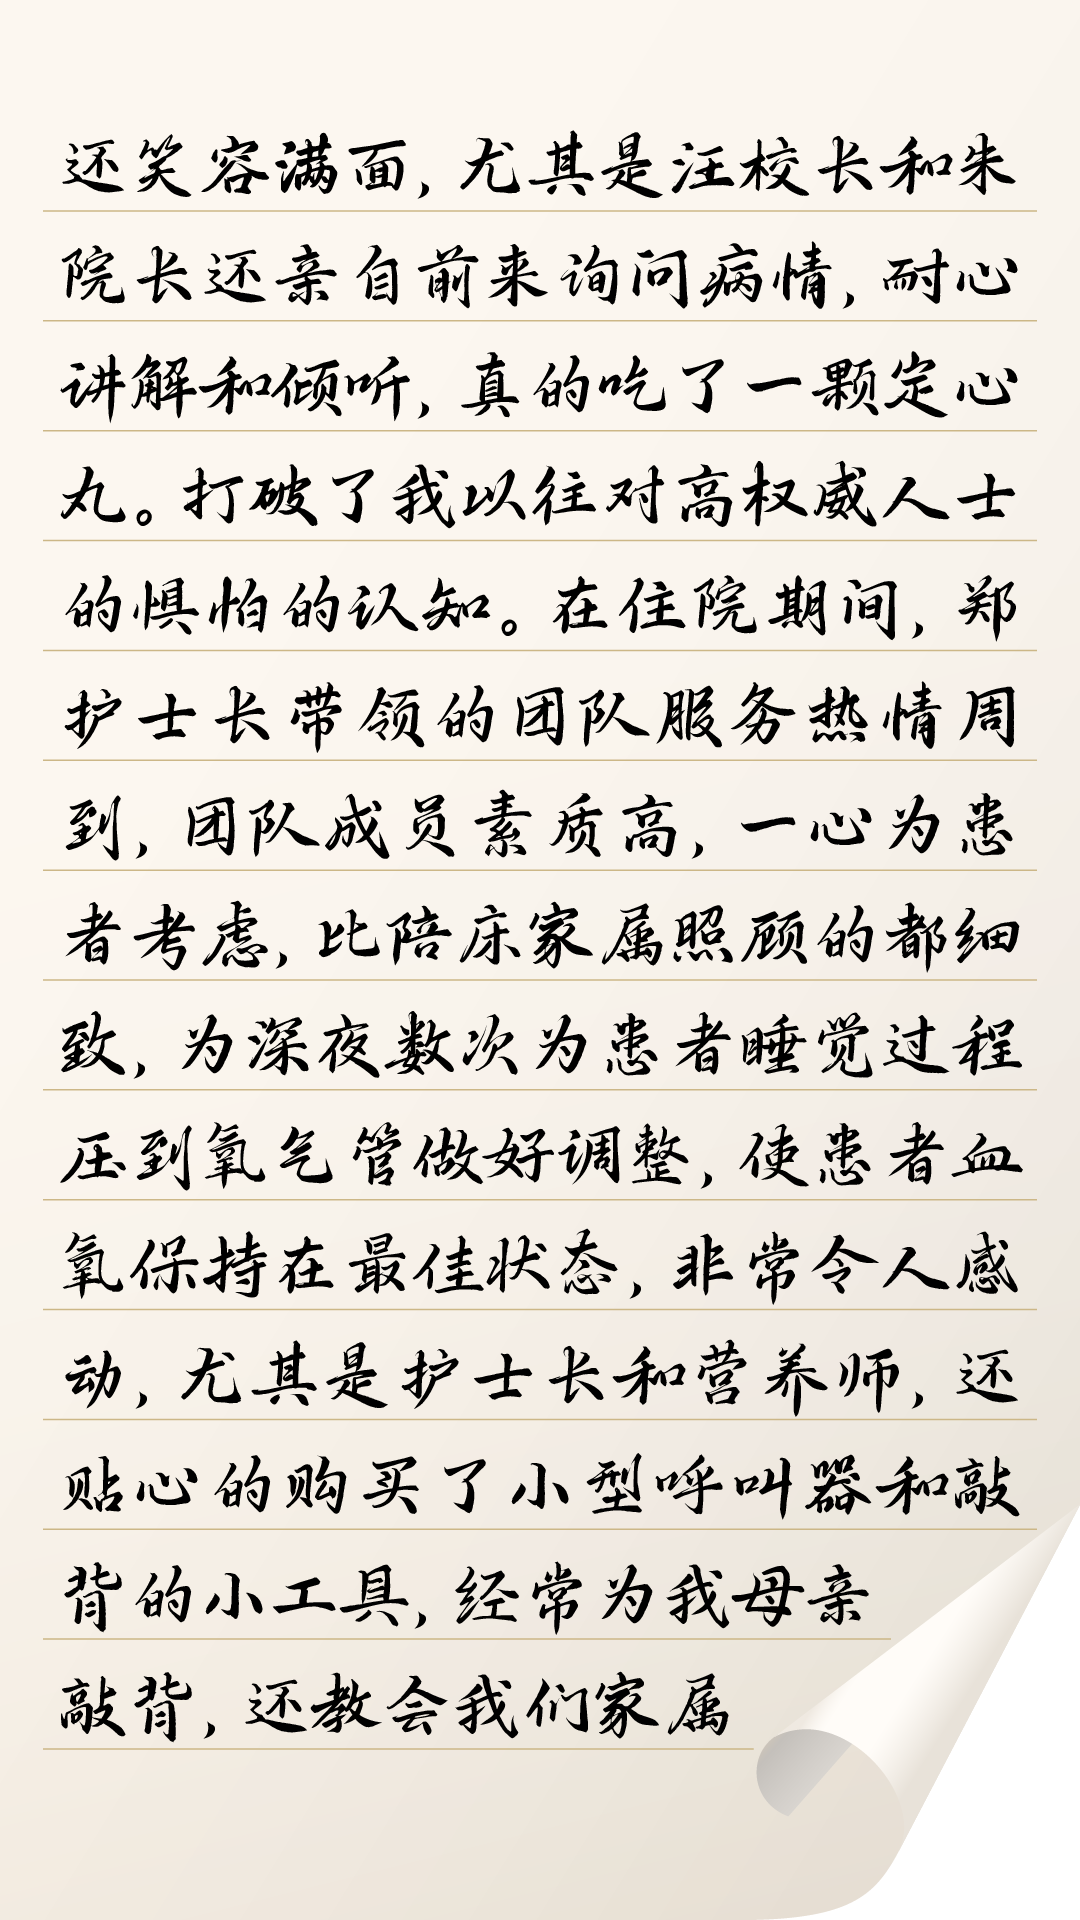 还笑容满面,尤其是汪校长和朱
院长还亲自前来询问病情,耐心
讲解和倾听,真的吃了一颗定心
丸。打破了我以往对高权威人士
的惧怕的认知。在住院期间,郑
护士长带领的团队服务热情周
到,团队成员素质高,一心为患
者考虑,比陪床家属照顾的都细
致,为深夜数次为患者睡觉过程
压到氧气管做好调整,使患者血
氧保持在最佳状态,非常令人感
动,尤其是护士长和营养师,还
贴心的购买了小型呼叫器和敲
背的小工具,经常为我母亲
敲背,还教会我们家属